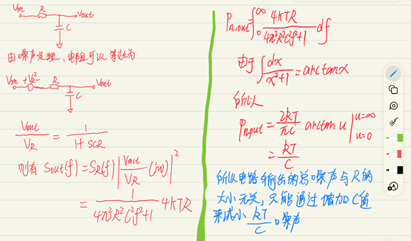 Vin R Vout
C
由噪声定理，电阻可以等效为
Vin R Vout
C
Vout/VR = 1/(1+SCR)
则有 Sout(f) = SR(f) |Vout/VR (jω)|²
= 1/(4π²R²C²f²+1) 4KTR
Pn,out = ∫₀^∞ 4KTR/(4π²R²C²f²+1) df
由于 ∫ dx/(x²+1) = arctanx
所以
Pn,out = 2KT/πC arctan u |u=∞ u=0
= KT/C
所以电路输出的总噪声与R的
大小无关，只能通过增加C值
来减小 KT/C 噪声